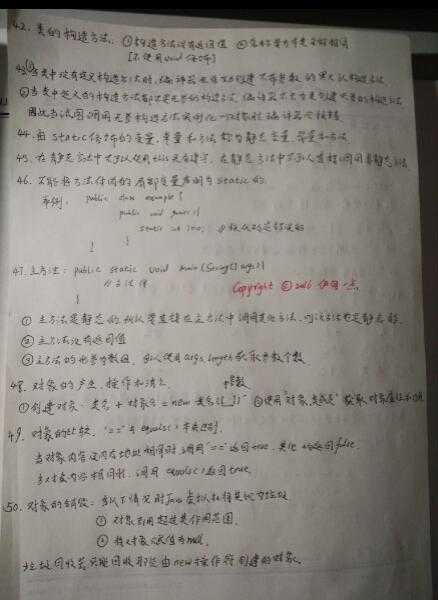 42. 类的构造方法. ①构造方法没有返回值 ②名称要与本类名称相同
[不使用void修饰]
43. ①当类中没有定义构造方法时,编译器会自动创建一个不带参数的默认构造方法
②当类中定义的构造方法都不是无参的构造方法,编译器不会为类创建无参的构造方法
因此当试图调用无参构造方法实例化一个对象时编译器会报错
44. 由static修饰的变量,常量和方法称为静态变量,常量和方法
45. 在静态方法中不可以使用this关键字. 在静态方法中不可以直接调用非静态方法
46. 不能将方法体内的局部变量声明为static的
举例: public class example {
public void
static int i=0; //
}
}
47. 主方法: public static void main(String[] args){
//方法体
}
Copyright © 2016 伊
① 主方法是静态的,所以要直接在主方法中调用其他方法,则该方法也是静态的.
② 主方法没有返回值
③ 主方法的形参为数组. 可以使用args.length获取参数个数
48. 对象的产生,操作和消亡. 参数
①创建对象: 类名 + 对象名 = new 类名( ) ②使用"对象.类成员"获取对象属性和行为
49. 对象的比较. "==" 与 equals() 有类别.
当对象内容及内存地址相等时,调用"=="返回true, 其他均返回false.
当对象内容相同时,调用 equals()返回true.
50. 对象的销毁: 当以下情况时Java虚拟机将其视为垃圾
① 对象引用超过其作用范围.
② 将对象赋值为null.
垃圾回收器只能回收那些由new操作符创建的对象.